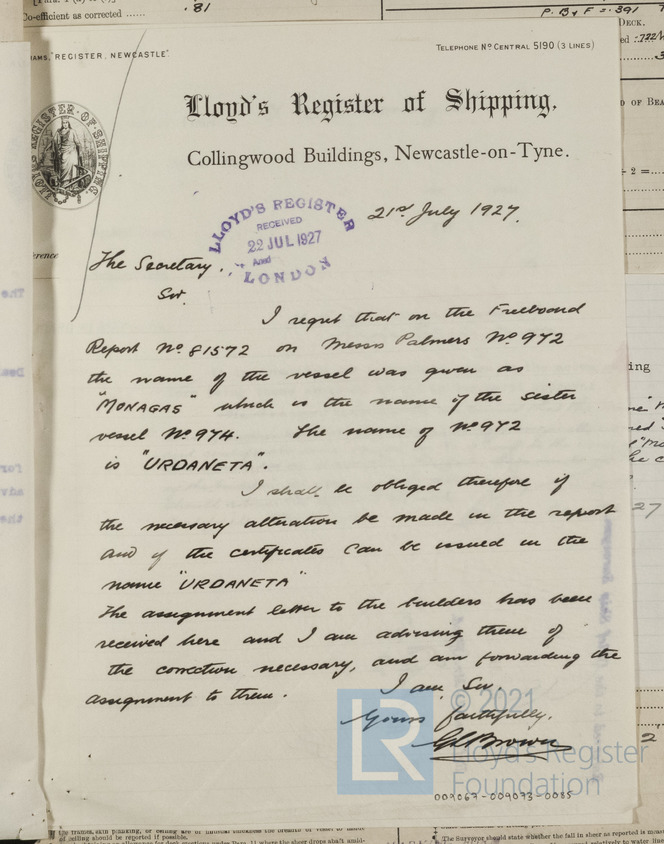 Co-efficient as corrected ......
.81
P. B & F = .391
DECK.
AMS, "REGISTER, NEWCASTLE".
TELEPHONE Nº CENTRAL 5190 (3 LINES)
Lloyd's Register of Shipping,
Collingwood Buildings, Newcastle-on-Tyne.
LLOYD'S REGISTER OF SHIPPING
21st July 1927.
LLOYD'S REGISTER
RECEIVED
22 JUL 1927
LONDON
The Secretary.
Sir.
I regret that on the Freeboard
Report Nº 81572 on Messrs Palmers Nº 972
the name of the vessel was given as
"MONAGAS" which is the name of the sister
vessel Nº 974. The name of Nº 972
is "URDANETA".
I shall be obliged therefore if
the necessary alteration be made in the report
and if the certificates can be issued in the
name "URDANETA"
The assignment letter to the builders has been
received here and I am advising them of
the correction necessary, and am forwarding the
assignment to them.
I am, Sir,
Yours faithfully,
GL Brown
LR
© 2021
Lloyd's Register
Foundation
009067-009073-0085
of ceiling should be reported if possible.
The Surveyor should state whether the fall in sheer as reported is